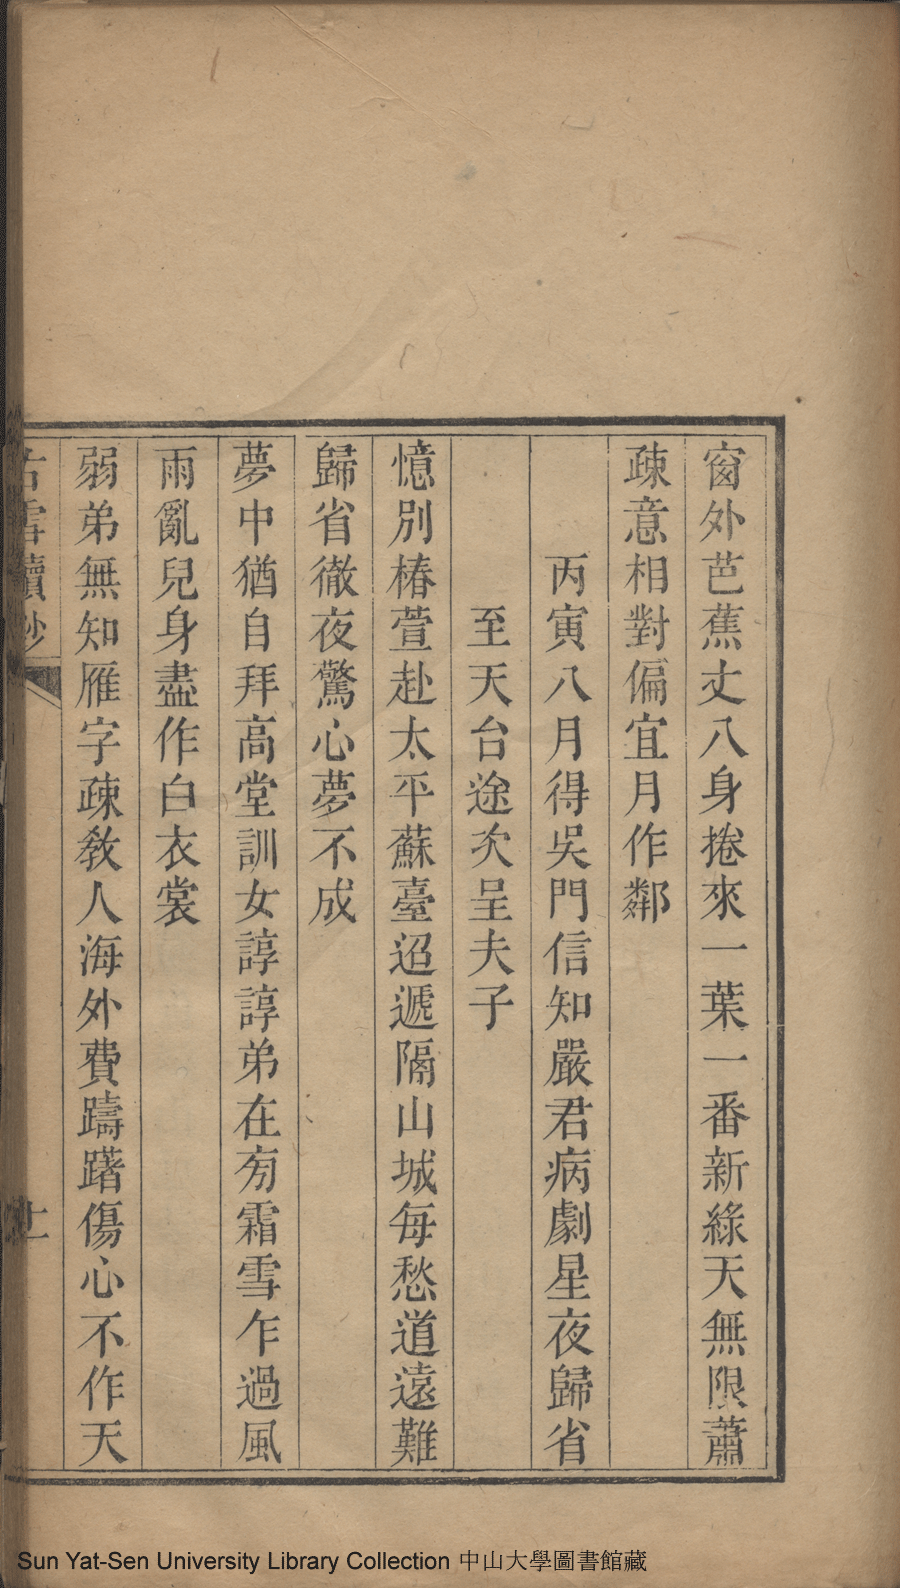 窗外芭蕉丈八身捲來一葉一番新綠天無限蕭
疎意相對偏宜月作鄰
丙寅八月得吳門信知嚴君病劇星夜歸省
至天台途次呈夫子
憶別椿萱赴太平蘇臺迢遞隔山城每愁道遠難
歸省徹夜驚心夢不成
夢中猶自拜高堂訓女諄諄弟在旁霜雪乍過風
雨亂兒身盡作白衣裳
弱弟無知雁字疎教人海外費躊躇傷心不作天
古雪續鈔
Sun Yat-Sen University Library Collection 中山大學圖書館藏